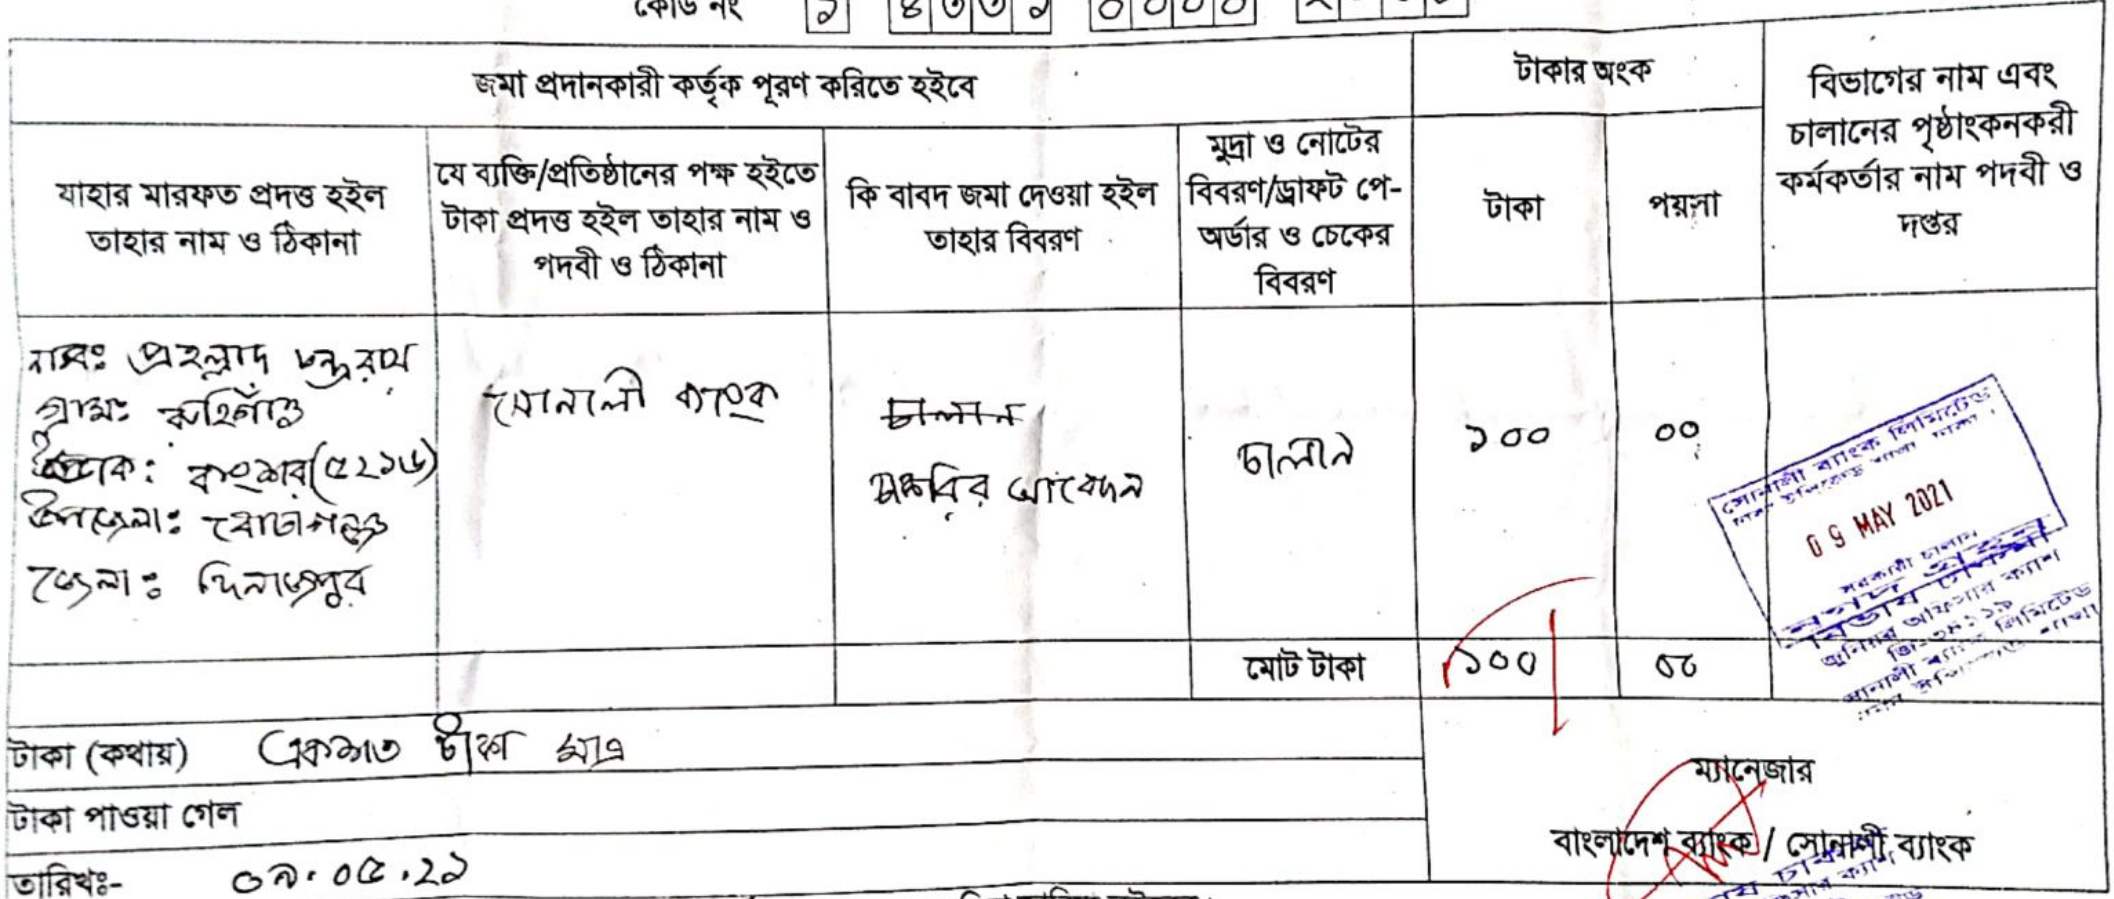 কোড নং ১ ৪৩৩১ ০০০০
জমা প্রদানকারী কর্তৃক পূরণ করিতে হইবে
টাকার অংক
বিভাগের নাম এবং
চালানের পৃষ্ঠাংকনকরী
কর্মকর্তার নাম পদবী ও
দপ্তর
যাহার মারফত প্রদত্ত হইল
তাহার নাম ও ঠিকানা
যে ব্যক্তি/প্রতিষ্ঠানের পক্ষ হইতে
টাকা প্রদত্ত হইল তাহার নাম ও
পদবী ও ঠিকানা
কি বাবদ জমা দেওয়া হইল
তাহার বিবরণ
মুদ্রা ও নোটের
বিবরণ/ড্রাফট পে-
অর্ডার ও চেকের
বিবরণ
টাকা
পয়সা
নামঃ প্রহল্লাদ চন্দ্র রায়
গ্রামঃ
ডাক: (৫২১৬)
উপজেলাঃ বোচাগঞ্জ
জেলাঃ দিনাজপুর
সোনালী ব্যাংক
চালান
চাকরির আবেদন
চালান
১০০
০০
সোনালী ব্যাংক লিমিটেড
09 MAY 2021
সরকারী চালান
জুনিয়র অফিসার ক্যাশ
সোনালী ব্যাংক লিমিটেড
মোট টাকা
১০০
০০
টাকা (কথায়) একশত টাকা মাত্র
টাকা পাওয়া গেল
তারিখঃ- ০৯.০৫.২১
ম্যানেজার
বাংলাদেশ ব্যাংক / সোনালী ব্যাংক